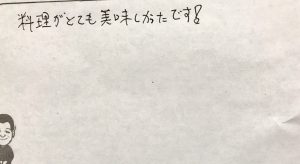 料理がとても美味しかったです!